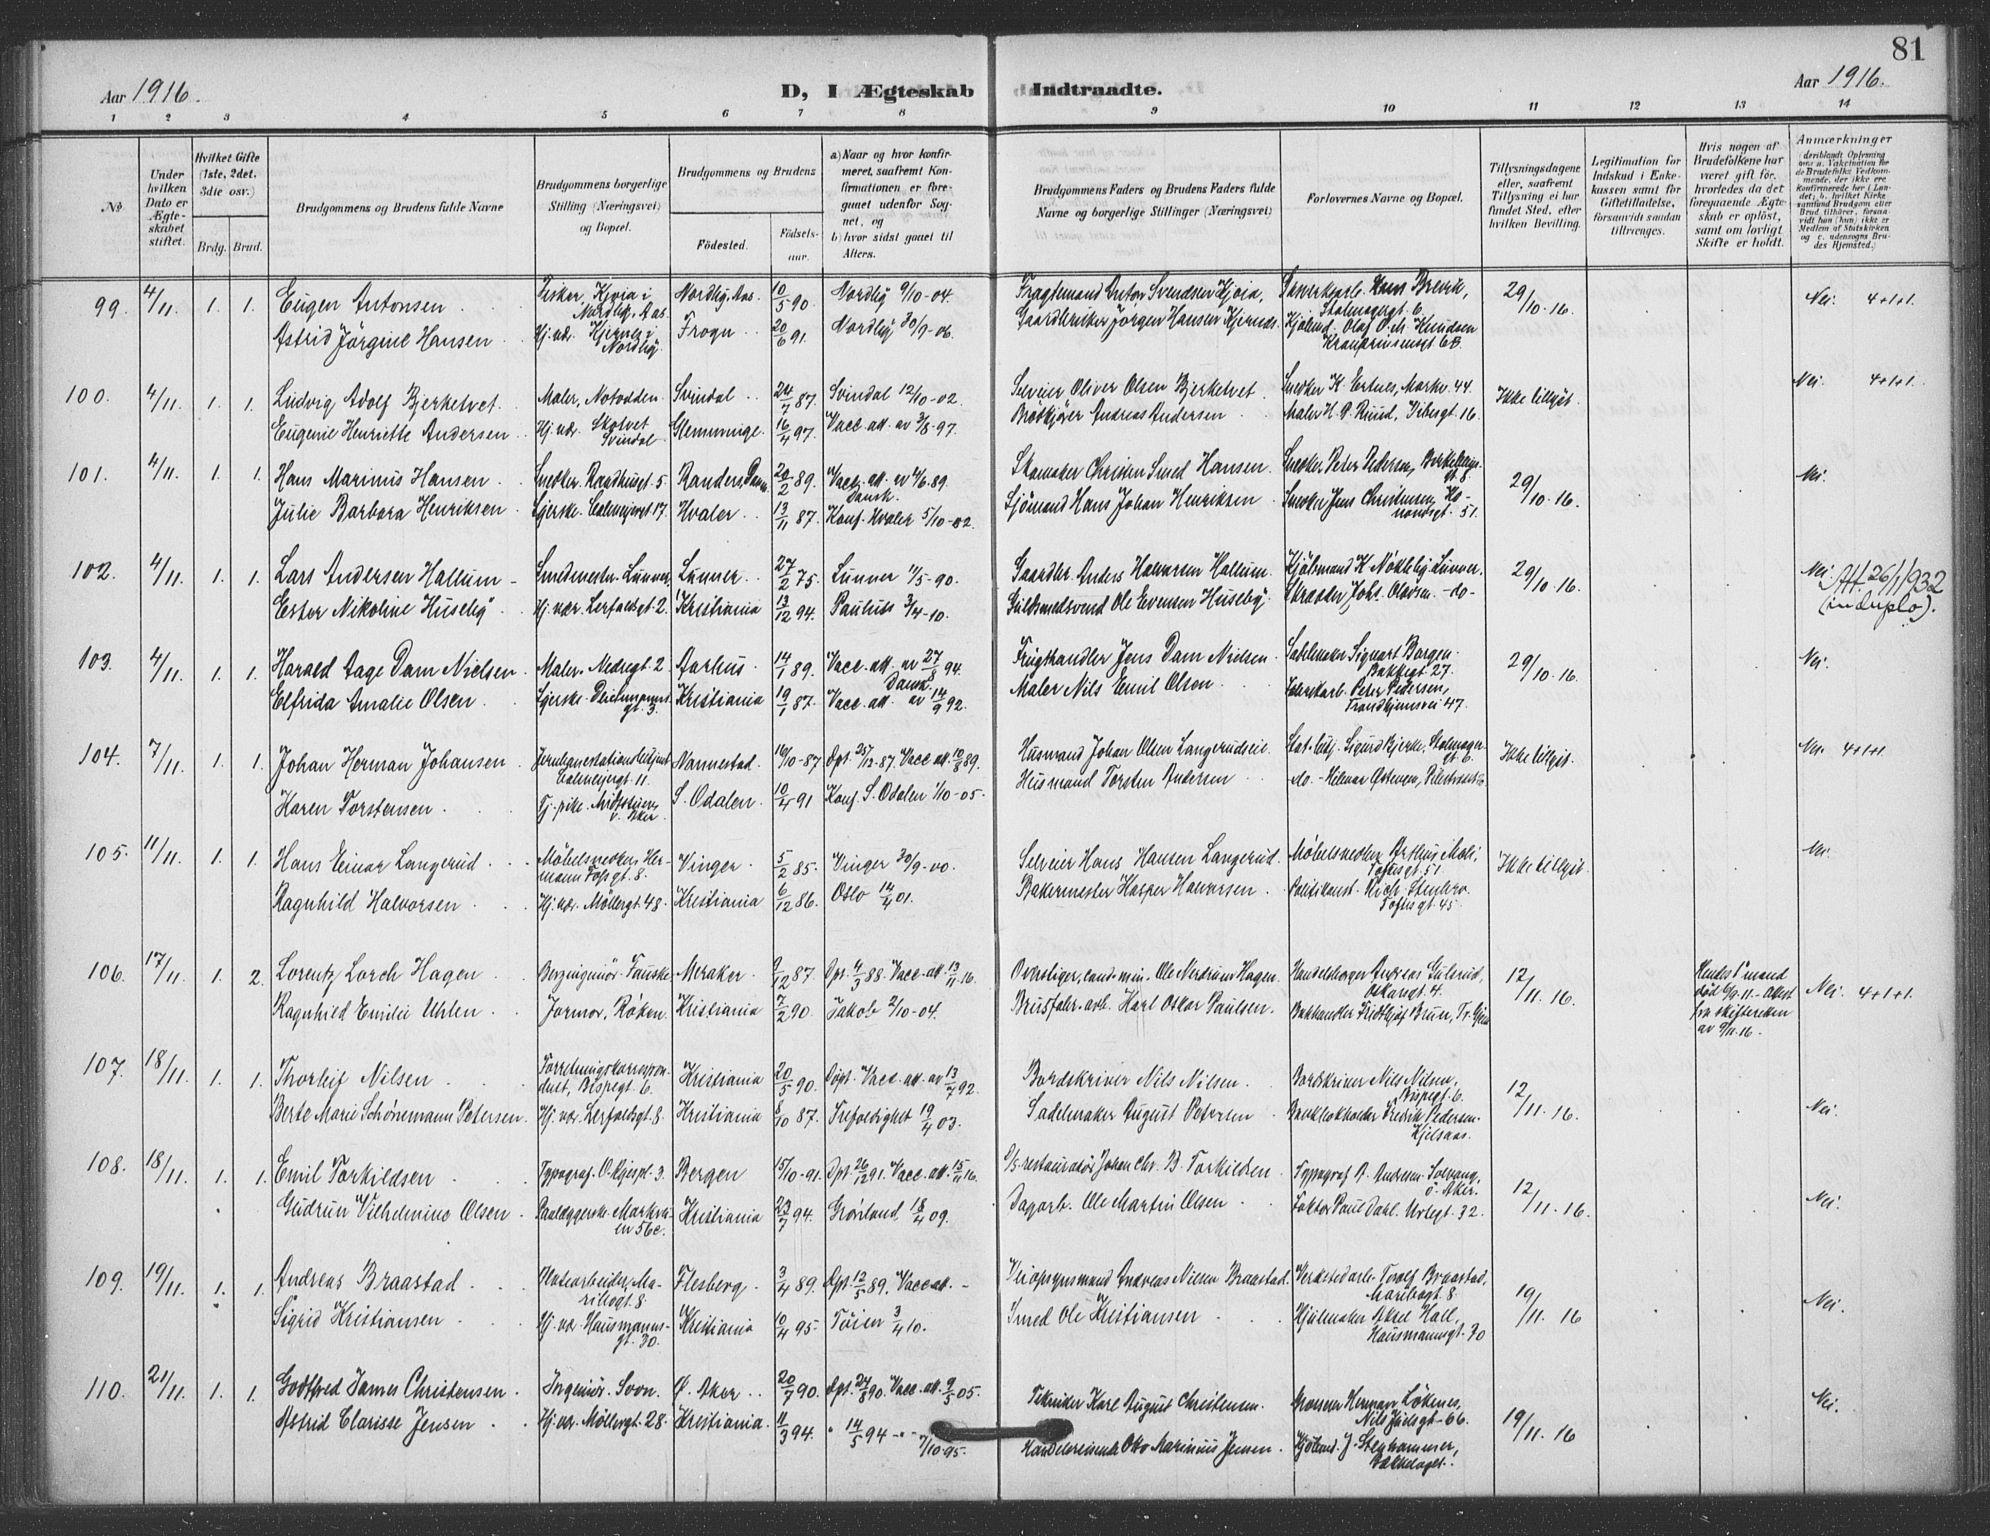 81
Aar 1916.
D, I Ægteskab Indtraadte.
Aar 1916.
1 2 3 4 5 6 7 8 9 10 11 12 13 14
No
Under hvilken Dato er Ægteskabet stiftet.
Hvilket Gifte (1ste, 2det, 3die osv.)
Brdg. Brud.
Brudgommens og Brudens fulde Navne
Brudgommens borgerlige Stilling (Næringsvei) og Bopæl.
Brudgommens og Brudens
Födested. Födselsaar.
a) Naar og hvor konfirmeret, saafremt Konfirmationen er foregaaet udenfor Sognet, og
b) hvor sidst gaaet til Alters.
Brudgommens Faders og Brudens Faders fulde Navne og borgerlige Stillinger (Næringsvei)
Forlovernes Navne og Bopæl.
Tillysningsdagene eller, saafremt Tillysning ei har fundet Sted, efter hvilken Bevilling.
Legitimation for Indskud i Enkekassen samt for Giftetilladelse, forsaavidt saadan tiltrænges.
Hvis nogen af Brudefolkene har været gift för, hvorledes da det foregaaende Ægteskab er oplöst, samt om lovligt Skifte er holdt.
Anmærkninger
99. 4/11. 1. 1. Eugen Antonsen Fisker, Nordlig, Aas. 10/5 90 Nordlig 9/10-04. Fragtemand Anton Svendsen 29/10-16. Nei. 4+1+1.
Astrid Jörgine Hansen Hj. vær. Frogn 20/6 91. Nordby 30/9-06. Gaardbruker Jørgen Hansen Kjølmd. Olaf O. M. Knudsen
Kronprinsensgt 6B.
100. 4/11. 1. 1. Ludvig Adolf Bjerketvet. Maler, Notodden. Svindal 24/7 87. Svindal 12/10-02. Selveier Oliver Olsen Bjerketvet. Snedker K. Ertnes, Markv. 44. Ikke tillyst. Nei. 4+1+1.
Eugenie Henriette Andersen Hj. vær. Skotvet Svindal Glemminge. 16/4 97. Vacc. att. av 3/8-97. Brödkjører Andreas Andersen Maler H. P. Ruud, Vibesgt. 16.
101. 4/11. 1. 1. Hans Marinus Hansen. Snedker. Raadhusgt. 5. Randers Danm. 20/2 89. Vacc. att. Dansk. Skomaker Christen Smed Hansen. Snedker Peter Pedersen, 29/10-16. Nei.
Julie Barbara Henriksen Syerske. Calmeyergt 17. Hvaler 13/11 87. Konf. Hvaler 5/10-02. Sjömand Hans Johan Henriksen Snedker Jens Christensen,
102. 4/11. 1. 1. Lars Andersen Hallum Smedmester. Lunner. Lunner 27/2 75. Lunner 11/5-90. Gaardbr. Anders Halvorsen Hallum. Kjöbmand K. Nökleby Lunner. 29/10-16. Nei. Att. 26/1 1932 (in duplo).
Ester Nikoline Huseby. Hj. vær. Lerfaldsgt. 2. Kristiania 13/12 94. Paulus 3/4-10. Guldsmedsvend Ole Evensen Huseby. Skræder Johs. Olavsen -do-
103. 4/11. 1. 1. Harald Aage Dam Nielsen Maler. Nedregt. 2. Aarhus. 14/1 89. Vacc. att. av 27/8 94. Dansk. Frugthandler Jens Dam Nielsen. Sadelmaker Sigvart Borgen. Bakkegt 27. 29/10-16. Nei.
Elfrida Amalie Olsen Syerske. Deichmansgt. 3. Kristiania 19/1 87. Vacc. att. av 14/9 92. Maler Nils Emil Olson Fabrikarb. Peter Pedersen, Trondhjemsvei 47.
104. 7/11. 1. 1. Johan Herman Johansen Jernbanestationsbetjent Calmeyergt 11. Nannestad. 16/10-87 Døpt 25/12-87. Vacc. att. 10/8 89. Husmand Johan Olsen Langerudseie Stat. betj. Sigurd Bjerke, Ikke tillyst. Nei. 4+1+1.
Karen Torstensen Tj. pike. Midtstuen, v. Aker S. Odalen. 10/4 91 Konf. S. Odalen 1/10-05. Husmand Torsten Andersen do. - Hilmar
105. 11/11. 1. 1. Hans Einar Langerud. Möbelsnedker, Hermann Fossgt. 8. Vinger. 5/2 85. Vinger 30/9-00. Selveier Hans Hansen Langerud. Möbelsnedker Arthur Moli, Toftesgt. 51. Ikke tillyst. Nei.
Ragnhild Halvorsen Hj. vær. Möllergt. 48. Kristiania 6/12 86. Oslo 14/4 01. Bakermester Kasper Halvorsen Politikonst. Rich. Stenbro. Toftesgt. 45.
106. 17/11. 1. 2. Lorentz Lorch Hagen Bergingeniör. Fauske. Meraker. 9/12 87. Døpt. 4/3 88. Vacc. att. 13/11 16. cand. min. Ole Nordrum Hagen. Handelsborger Andreas Gulsrud, Oskarsgt. 4. 12/11. 16. Hendes 1ste mand död 6/9 11 - Attest fra skifteretten av 9/11. 16. Nei. 4+1+1.
Ragnhild Emilie Uhlen Jormor, Röken. Kristiania 7/2 90. Jakob 2/10-04. Brusfabr. arb. Karl Oskar Paulsen. Bokhandler Fridthjof Bruun,
107. 18/11. 1. 1. Thorleif Nilsen Forretningskorrespondent, Bispegt. 6. Kristiania 20/5 90. Døpt. Vacc. att. av 13/7 92. Bordskriver Nils Nilsen Bordskriver Nils Nilsen, Bispegt. 6. 12/11. 16. Nei.
Berte Marie Schönemann Petersen. Hj. vær. Lerfaldsgt. 8. Kristiania 8/10 87. Trefoldighet 19/4 03. Sadelmaker August Petersen Bankbokholder Fredrik Pedersen. Kjelsaas.
108. 18/11. 1. 1. Emil Torkildsen Typograf. 3. Bergen 15/10-91. Døpt 26/12 91. Vacc. att. 15/11 16. restauratör Johan Chr. B. Torkildsen Typograf A. Andresen Solvang, Ö. Aker. 12/11. 16. Nei.
Gudrun Vilhelmine Olsen Paalæggerske. Markveien 56c. Kristiania 23/7 94. Grönland 18/4 09. Dagarb. Ole Martin Olsen Faktor Paul Dahl. Urtegt. 32.
109. 19/11. 1. 1. Andreas Braastad Platearbeider, Maribogt. 8. Flesberg. 3/4 89. Døpt 12/5 89. Vacc. att. Andreas Nilsen Braastad. Verkstedarb. Torolf Braastad, Maribogt. 8. 19/11. 16 Nei.
Sigrid Kristiansen Hj. vær. Hausmannsgt. 30. Kristiania 10/4 95. Töien 3/4 10. Smed Ole Kristiansen Hjulmaker Aksel Hall, Hausmannsgt. 30
110. 21/11. 1. 1. Godtfred James Christensen Ingeniör. Svon. Ö. Aker 20/7 90. Døpt. 24/8 90. Vacc. att. 9/5 05. Tekniker Karl August Christensen. Grosserer Herman Lökenes, Nils Juelsgt. 66. 19/11. 16 Nei.
Astrid Clarisse Jensen Hj. vær. Möllergt. 28. Kristiania. 11/3 94. 14/5 94 7/10 95. Handelsreisende Otto Marinius Jensen. Kjöbmd. J. Stenhammer, Bækkelaget.